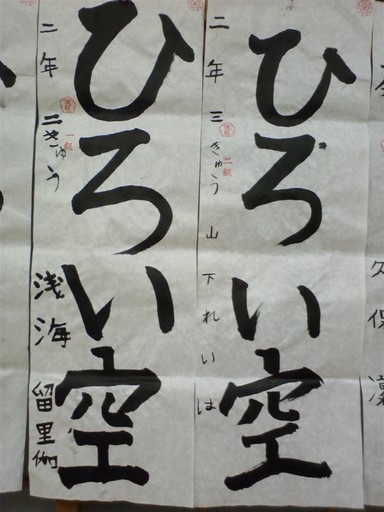 ひろい空
二年 三きゅう 山下れいは
ひろい空
二年 二きゅう 浅海 留里伽
久保